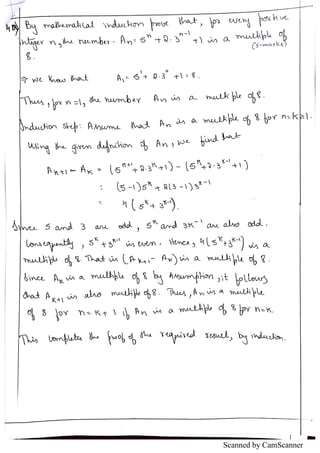 By mathematical induction prove that, for every positive
integer n, the number. An = 5ⁿ + 2·3ⁿ⁻¹ + 1 is a multiple of
8. (5-marks)
→ we know that A₁ = 5¹ + 2·3⁰ + 1 = 8.
Thus, for n=1, the number An is a multiple of 8.
Induction step: Assume that An is a multiple of 8 for n=K≥1.
Using the given definition of An, we find that
Aₖ₊₁ - Aₖ = (5ᴷ⁺¹ + 2·3ᴷ + 1) - (5ᴷ + 2·3ᴷ⁻¹ + 1)
= (5-1)5ᴷ + 2(3-1)3ᴷ⁻¹
= 4(5ᴷ + 3ᴷ⁻¹).
Since 5 and 3 are odd, 5ᴷ and 3ᴷ⁻¹ are also odd.
Consequently, 5ᴷ + 3ᴷ⁻¹ is even. Hence, 4(5ᴷ + 3ᴷ⁻¹) is a
multiple of 8. That is (Aₖ₊₁ - Aₖ) is a multiple of 8.
Since Aₖ is a multiple of 8 by Assumption, it follows
that Aₖ₊₁ is also multiple of 8. Thus, An is a multiple
of 8 for n=K+1 if An is a multiple of 8 for n=K.
This completes the proof of the required result, by induction.
Scanned by CamScanner